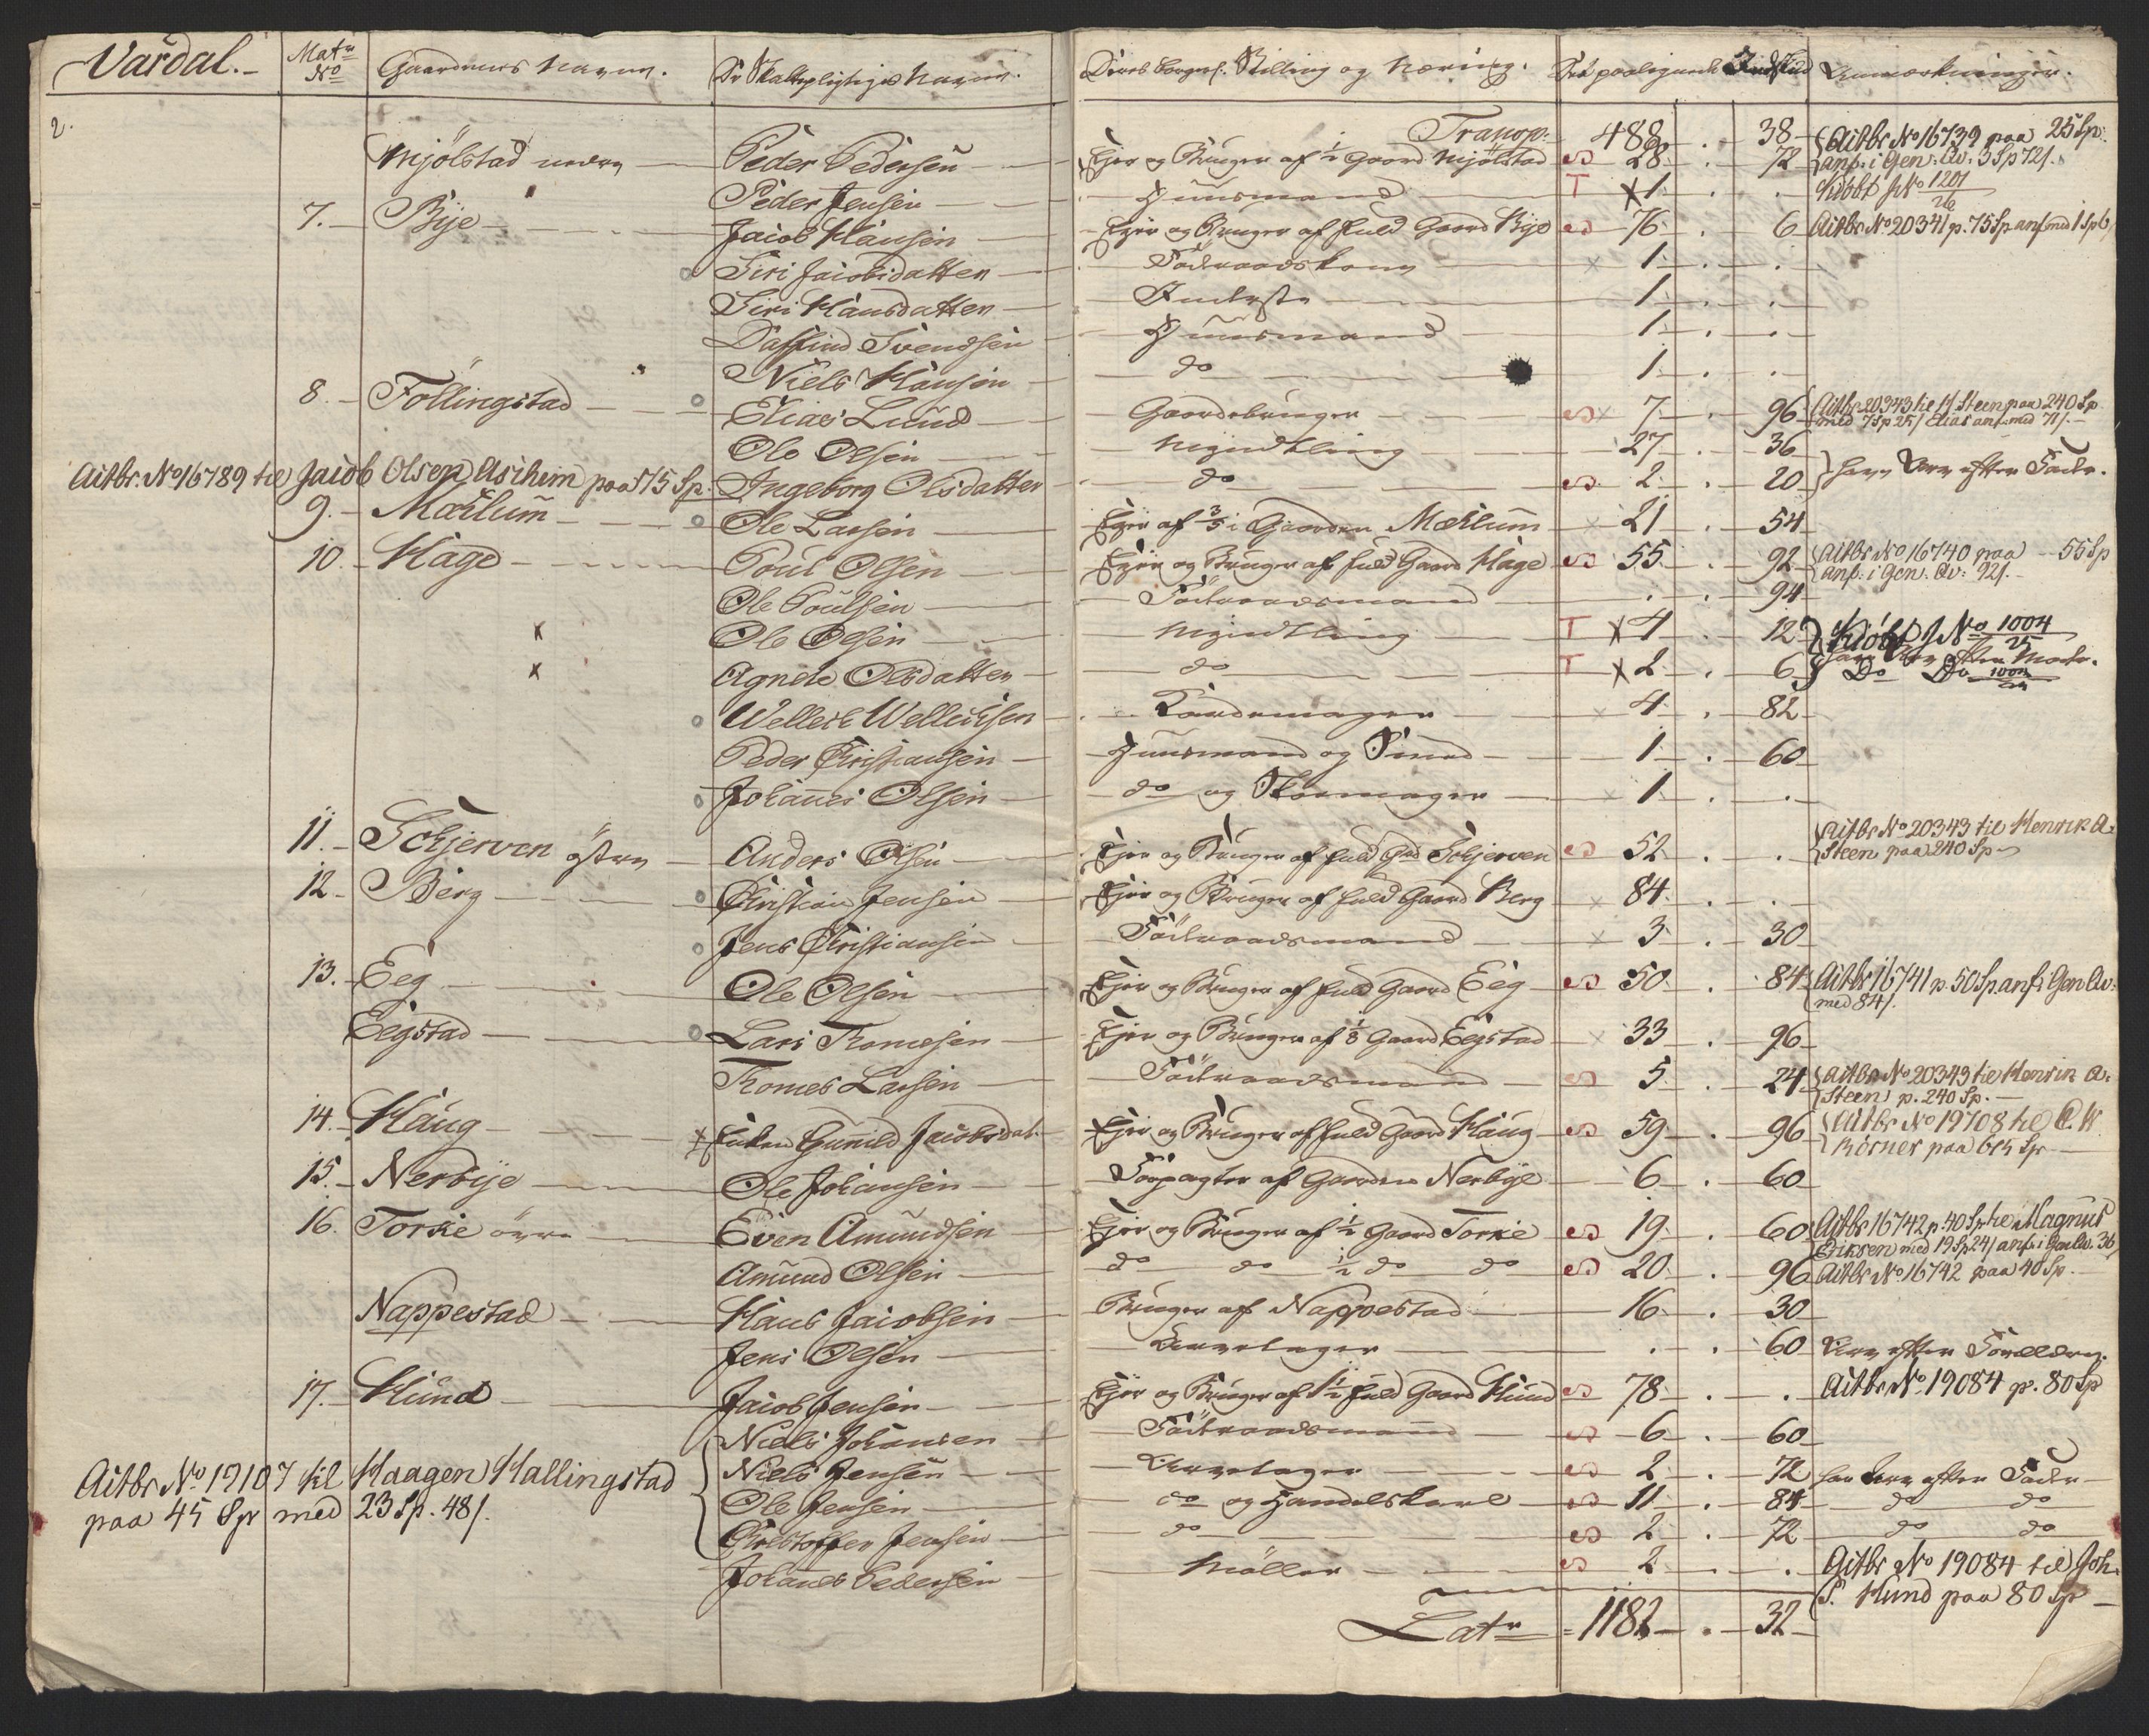 Vardal. Matr No Gaardenes Navne. De Skattepligtiges Navne. Deres borgerl. Stilling og Næring. Det paalignede Indskud Anmærkninger.
2.
Transp: 488 . 38
Mjölstad nedre Peder Pedersen Ejer og Bruger af 1/2 Gaard Mjölstad 28 . 72 Aitbr No 16739 paa 25 Sp: anf. i Gen. Qv. 3 Sp 72/.
Peder Jensen Huusmand T x 1 . . Kiöbt J No 1201/26
7. Bye Jacob Hansen Ejer og Bruger af fuld Gaard Bye 76 . 6 Aitbr No 20341 p. 75 Sp anf med 1 Sp 6/
Siri Jacobsdatter Föderaadskone x 1 . .
Siri Hansdatter Inderste 1 . .
Daffind Svendsen Huusmand 1 . .
Niels Hansen do 1 . .
8. Föllingstad Elias Lund Gaardebruger x 7 . 96 Aitbr 20343 til H Steen paa 240 Sp med 7 Sp 25/ Elias anf. med 71/.
Ole Olsen Myndtling 27 . 36
Aitbr. No 16789 til Jacob Olsen Asihem paa 75 Sp. Ingeborg Olsdatter do 2 . 20 have Arv efter Fader.
9. Mælum Ole Larsen Ejer af 3/5 i Gaarden Mælum x 21 . 54
10. Hage Poul Olsen Ejer og Bruger af fuld Gaard Hage 55 . 92 Aitbr No 16740 paa 55 Sp anf: i Gen: Qv: 92/.
Ole Poulsen Föderaadsmand . . 94
x Ole Olsen Myndtling T x 4 . 12 Kiöbt J No 1004/25
x Agnete Olsdatter do T x 2 . 6 have Arv efter Moder. Do Do 1004/25
Welleck Wellecksen Kardemager x 4 . 82
Peder Christiansen Huusmand og Smed 1 . 60
Johannes Olsen do og Skoemager x 1 . .
11. Schjerven östre Anders Olsen Ejer og Bruger af fuld Grd Schjerven 52 . . Aitbr No 20343 til Henrik A. Steen paa 240 Sp
12. Berg Christian Jensen Ejer og Bruger af fuld Gaard Berg x 84 . .
Jens Christiansen Föderaadsmand x 3 . 30
13. Eeg Ole Olsen Ejer og Bruger af fuld Gaard Eeg 50 . 84 Aitbr 16741 p. 50 Sp. anf i Gen Qv: med 84/.
Eegstad Lars Thomesen Ejer og Bruger af 1/8 Gaard Eegstad x 33 . 96
Thomes Larsen Föderaadsmand 5 . 24 Aitbr No 20343 til Henrik A. Steen p. 240 Sp.
14. Haug x Enken Gunild Jacobsdat. Ejer og Bruger af fuld Gaard Haug 59 . 96 Aitbr No 19708 til C. W. Körner paa 612 Sp
15. Nerbye Ole Johansen Forpagter af Gaarden Nerbye 6 . 60
16. Torkie övre Even Amundsen Ejer og Bruger af 1/2 Gaard Torkie 19 . 60 Aitbr 16742 p. 40 Sp til Magnus Eriksen med 19 Sp 24/ anf. i Gen Qv. 36/
Amund Olsen do do 1/2 do do 20 . 96 Aitbr No 16742 paa 40 Sp.
Nappestad Hans Jacobsen Bruger af Nappestad 16 . 30
Jens Olsen Arvetager . . 60 Arv efter Forældre.
17. Hund Jacob Jensen Ejer og Bruger af 1 1/2 fuld Gaard Hund 78 . . Aitbr No. 19084 p. 80 Sp
Niels Johansen Föderaadsmand 6 . 60
Aitbr No. 19107 til Haagen Hallingstad Niels Jensen Arvetager 2 . 72 har Arv efter Fader
paa 45 Spr med 23 Sp. 48/. Ole Jensen do og Handelskarl 11 . 84 do do
Christoffer Jensen do 2 . 72 do do
Johanes Pedersen Möller 2 . . Aitbr No 19084 til Joh. P. Hund paa 80 Sp
Latr 1182 . 32